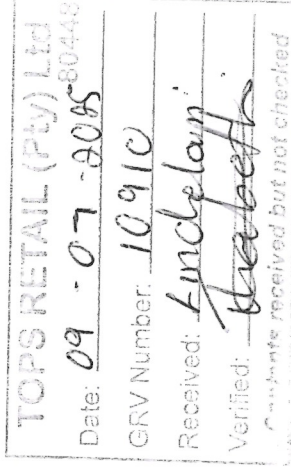 TOPS RETAIL (Pty) Ltd
80448
Date: 09-07-2025
GRV Number: 10910
Received:
Verified:
Contents received but not checked